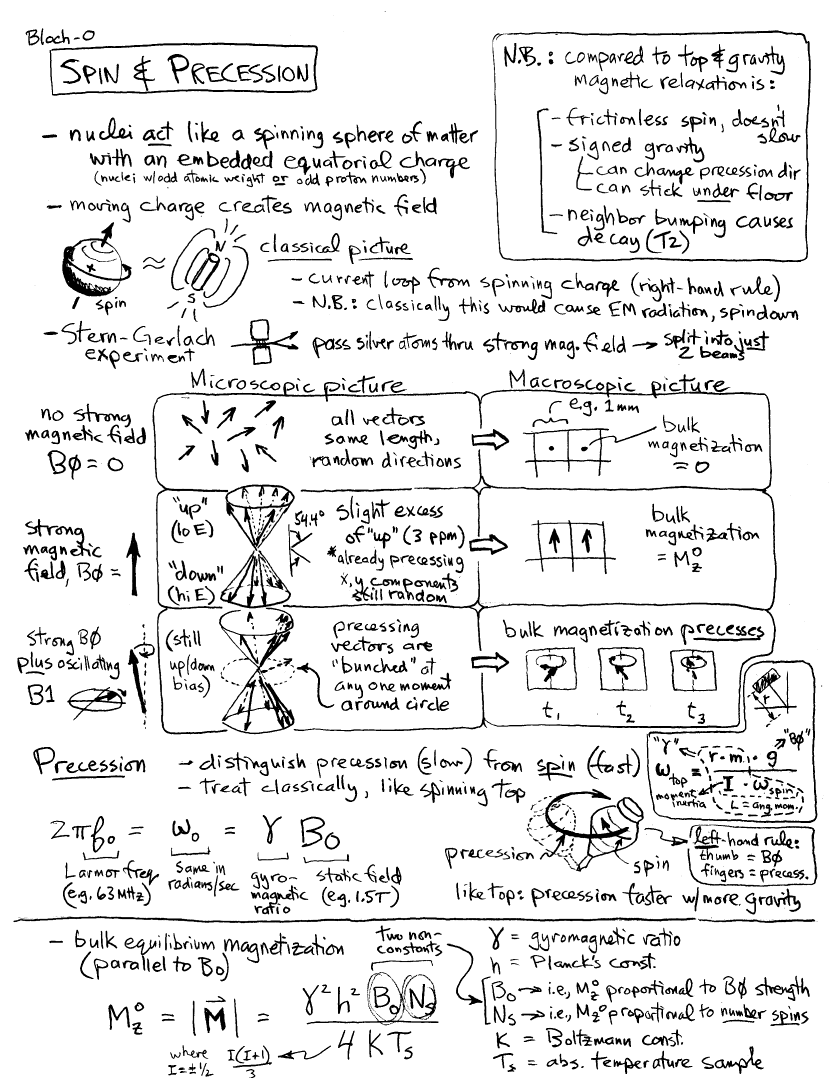 Bloch-0
SPIN & PRECESSION
N.B.: compared to top & gravity
magnetic relaxation is:
- frictionless spin, doesn't
slow
- signed gravity
can change precession dir
can stick under floor
- neighbor bumping causes
decay (T2)
- nuclei act like a spinning sphere of matter
with an embedded equatorial charge
(nuclei w/odd atomic weight or odd proton numbers)
- moving charge creates magnetic field
+
spin
≈
N
S
classical picture
- current loop from spinning charge (right-hand rule)
- N.B.: classically this would cause EM radiation, spindown
- Stern-Gerlach
experiment
pass silver atoms thru strong mag. field → split into just
2 beams
Microscopic picture
Macroscopic picture
no strong
magnetic field
BØ = 0
all vectors
same length,
random directions
e.g. 1 mm
bulk
magnetization
= 0
strong
magnetic
field, BØ =
"up"
(lo E)
"down"
(hi E)
54.4°
slight excess
of "up" (3 ppm)
*already precessing
x, y components
still random
bulk
magnetization
= M_z^0
strong BØ
plus oscillating
B1
(still
up/down
bias)
precessing
vectors are
"bunched" at
any one moment
around circle
bulk magnetization precesses
t₁ t₂ t₃
r
"γ"
"BØ"
ω_top = r · m · g / I · ω_spin
moment
inertia
L = ang. mom.
Precession
- distinguish precession (slow) from spin (fast)
- treat classically, like spinning top
2πf₀ = ω₀ = γ B₀
Larmor freq
(e.g. 63 MHz)
same in
radians/sec
gyro-
magnetic
ratio
static field
(e.g. 1.5T)
precession
spin
left-hand rule:
thumb = BØ
fingers = precess.
like top: precession faster w/more gravity
- bulk equilibrium magnetization
(parallel to B₀)
two non-
constants
M_z^0 = |M⃗| = γ² h² B₀ Ns / 4 K Ts
where
I = ±½
I(I+1)
3
γ = gyromagnetic ratio
h = Planck's const.
B₀ → i.e., M_z^0 proportional to BØ strength
Ns → i.e., M_z^0 proportional to number spins
K = Boltzmann const.
Ts = abs. temperature sample